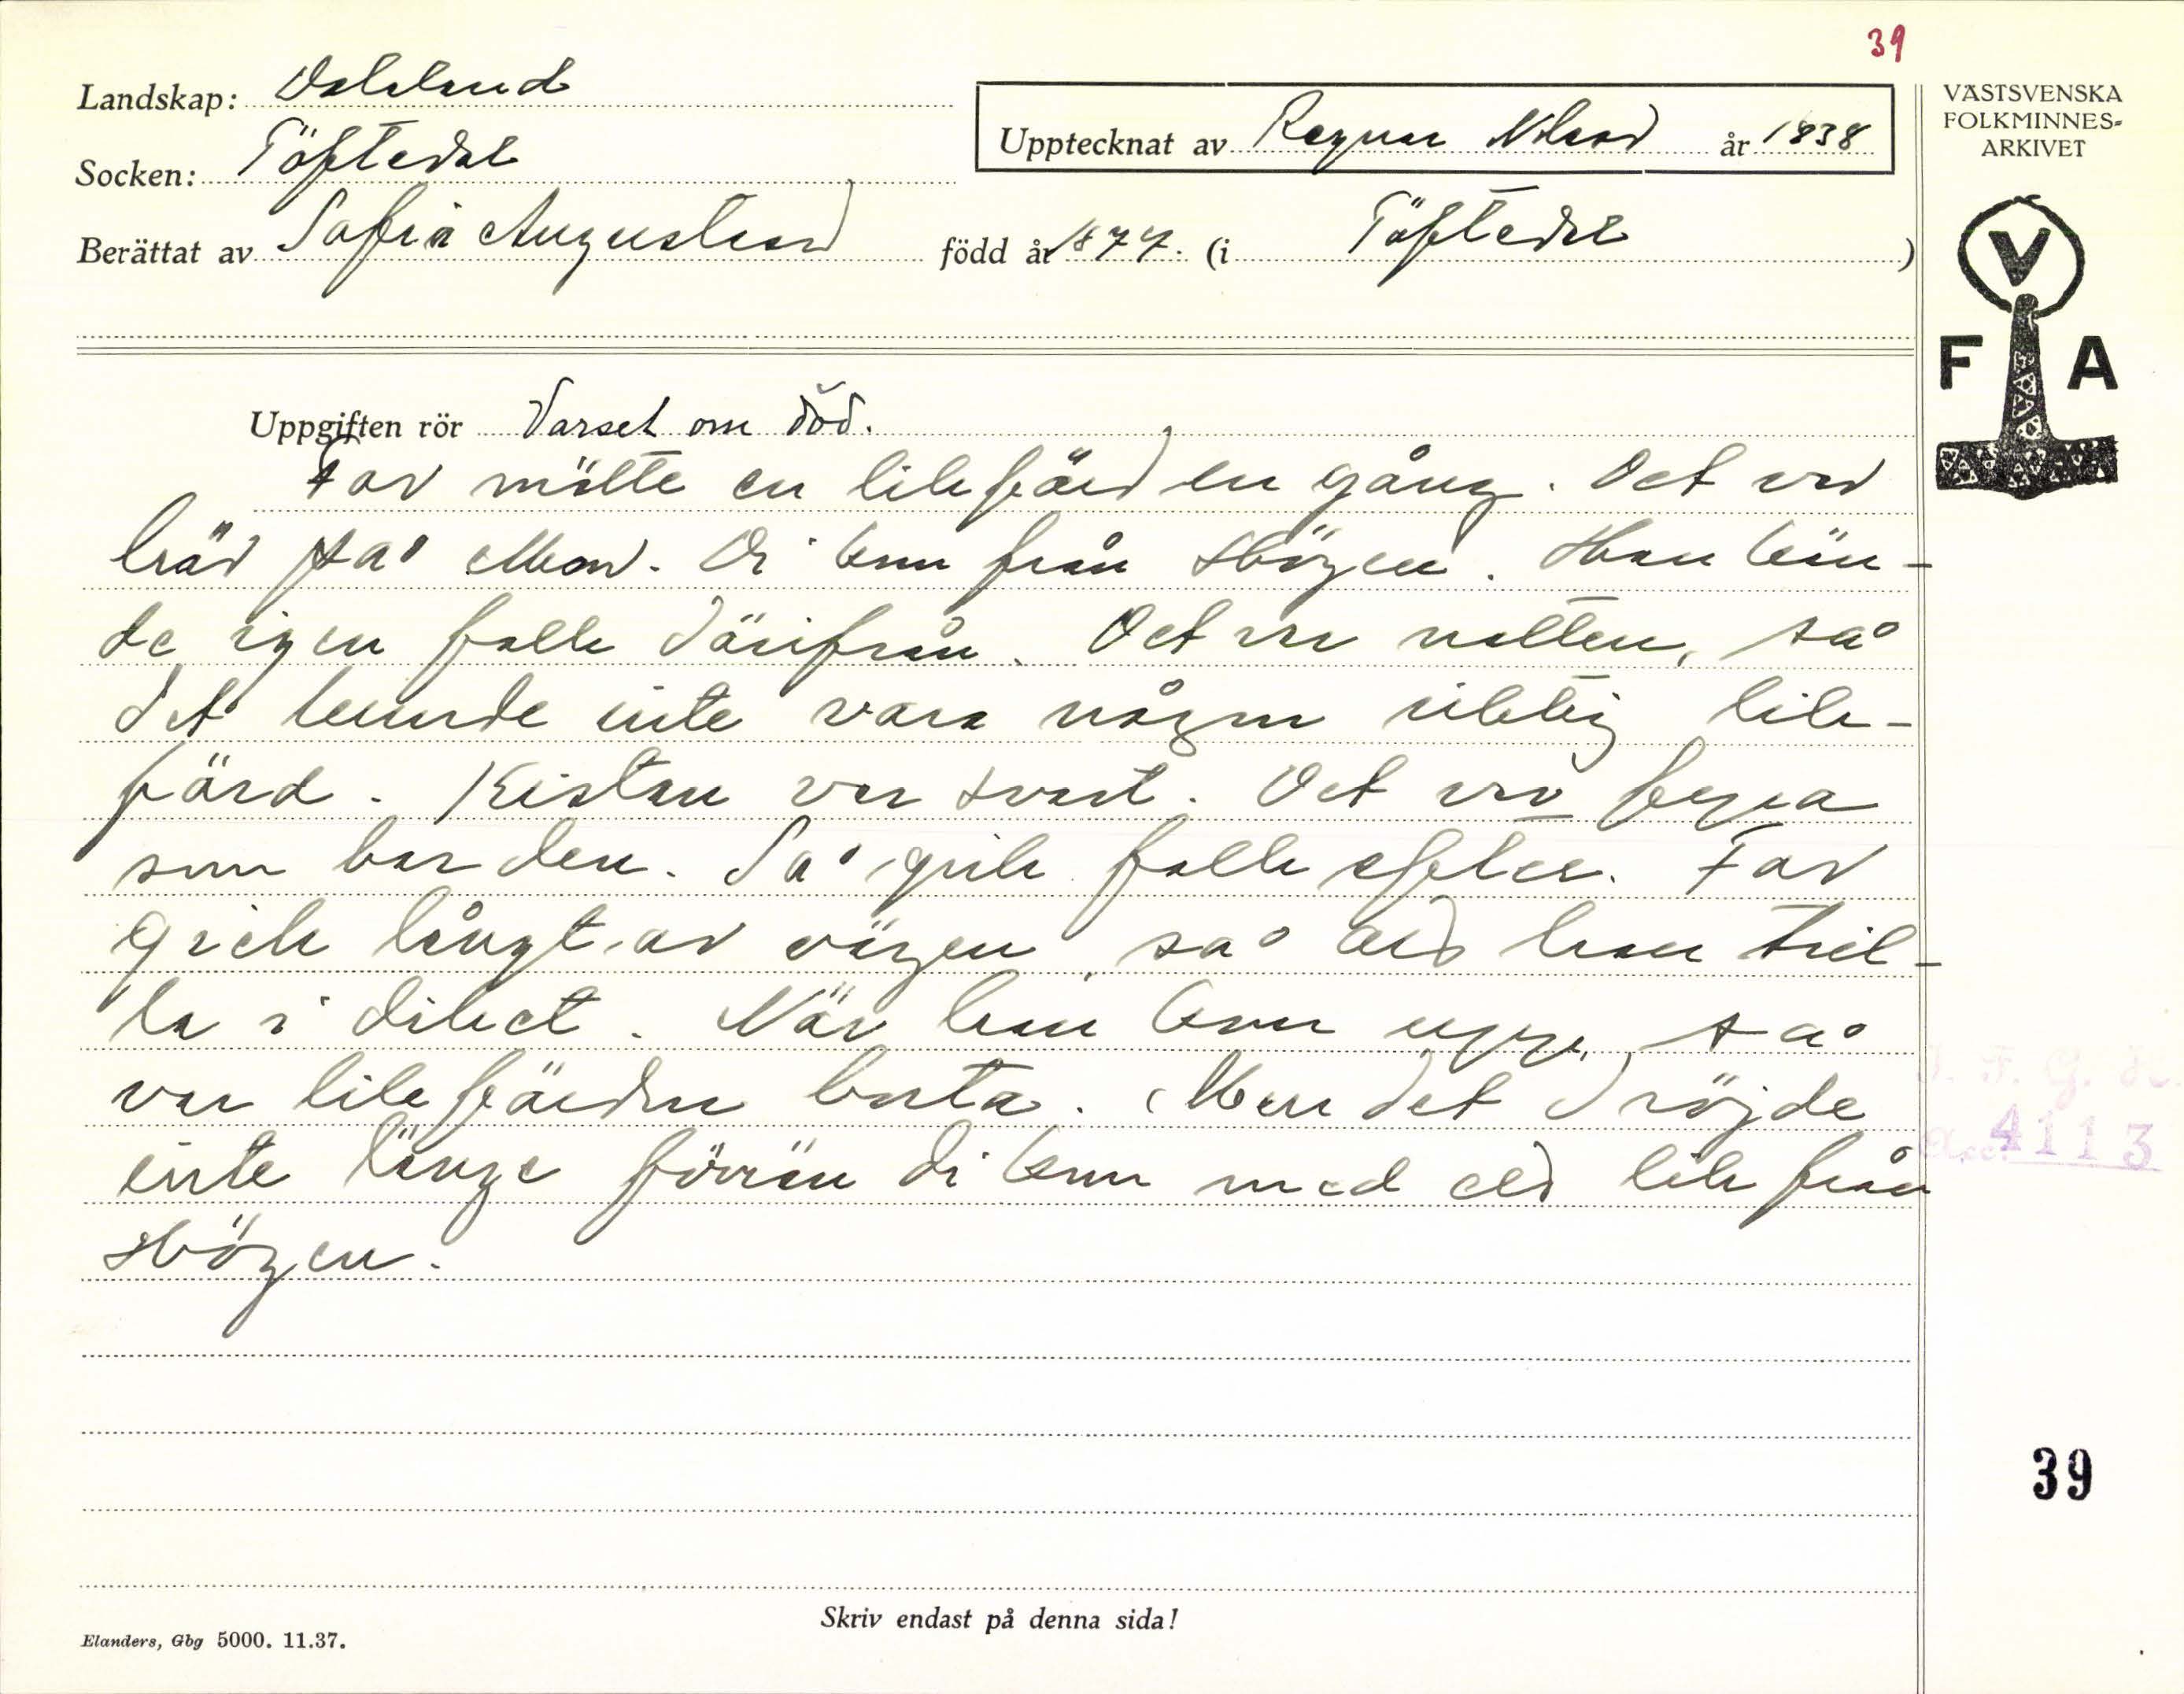 39
Landskap: Dalsland
Socken: Töftedal
Upptecknat av Ragnar Nilsson år 1938
Berättat av Sofia Augustsson född år 1877. (i Töftedal)
VÄSTSVENSKA
FOLKMINNES-
ARKIVET
V
F A
Uppgiften rör Varsel om död.
Far mötte en likfärd en gång. Det var
här på Mon. Di kom från Högen. Han kän-
de igen folk därifrån. Det var natten, så
det kunde inte vara någon riktig lik-
färd. Kistan var svart. Det var fyra
som bar den. Så gick folk efter. Far
gick långt av vägen, så att han tril-
la i diket. När han kom upp, så
var likfärden borta. Men det dröjde
inte länge förrän di kom med ett lik från
Högen.
I. F. G. H.
Acc. 4113
39
Skriv endast på denna sida!
Elanders, Gbg 5000. 11.37.